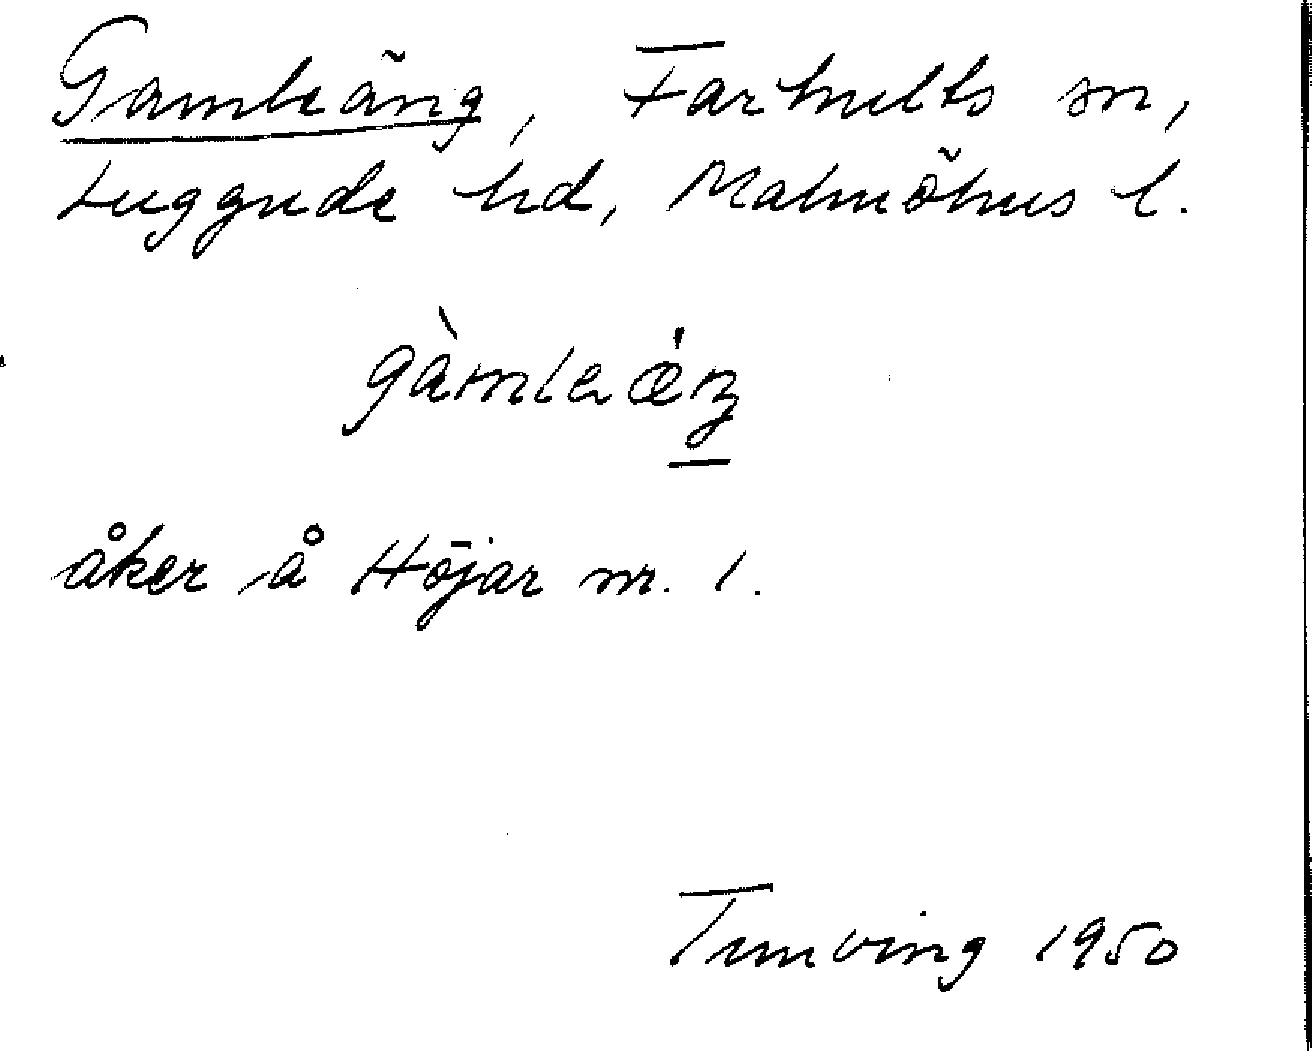 Gamleäng, Farhults sn,
Luggude hd, Malmöhus l.
gàmlaǽŋ
åker å Höjar nr. 1.
Tunving 1950